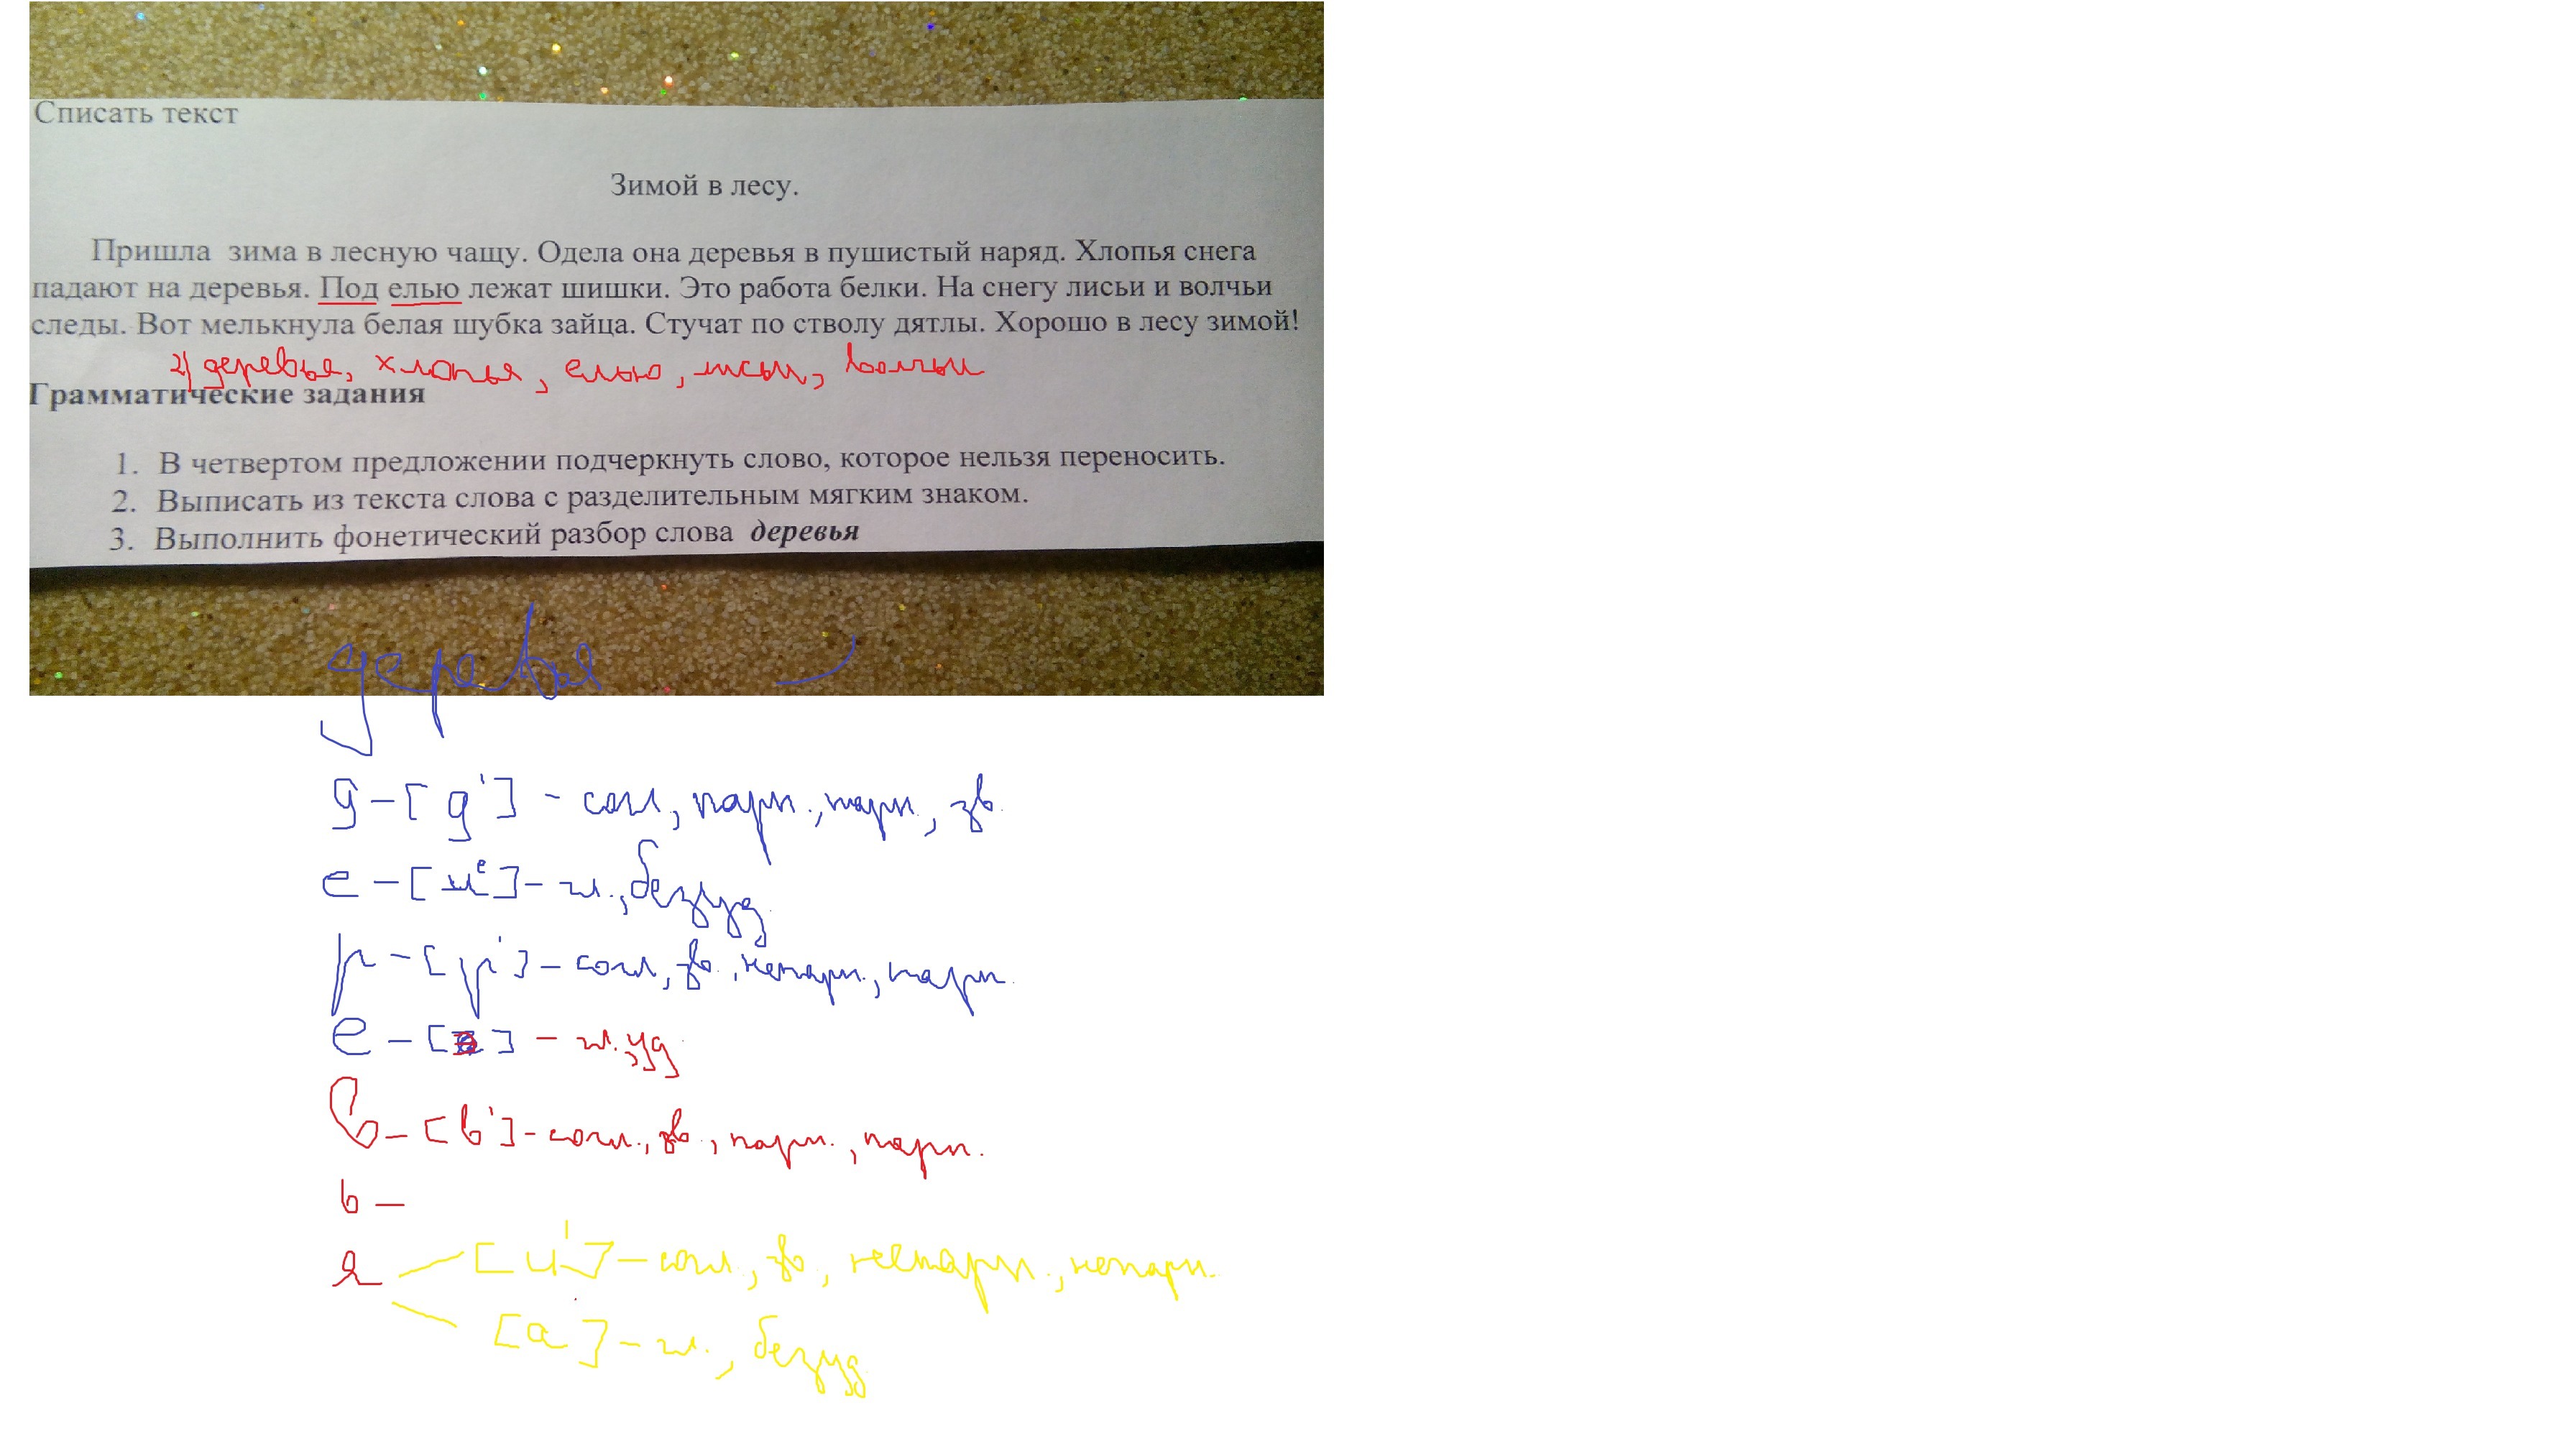 Списать текст
Зимой в лесу.
Пришла зима в лесную чащу. Одела она деревья в пушистый наряд. Хлопья снега
падают на деревья. Под елью лежат шишки. Это работа белки. На снегу лисьи и волчьи
следы. Вот мелькнула белая шубка зайца. Стучат по стволу дятлы. Хорошо в лесу зимой!
2) деревья, хлопья, елью, лисьи, волчьи
Грамматические задания
1. В четвертом предложении подчеркнуть слово, которое нельзя переносить.
2. Выписать из текста слова с разделительным мягким знаком.
3. Выполнить фонетический разбор слова деревья
деревья
д – [д'] - согл, парн., парн., зв.
е – [иᵉ] – гл., безуд.
р – [р'] – согл, зв., непарн., парн.
е – [э] – гл., уд.
в – [в'] - согл., зв., парн., парн.
ь –
я – [й'] – согл., зв., непарн., непарн.
[а] – гл., безуд.